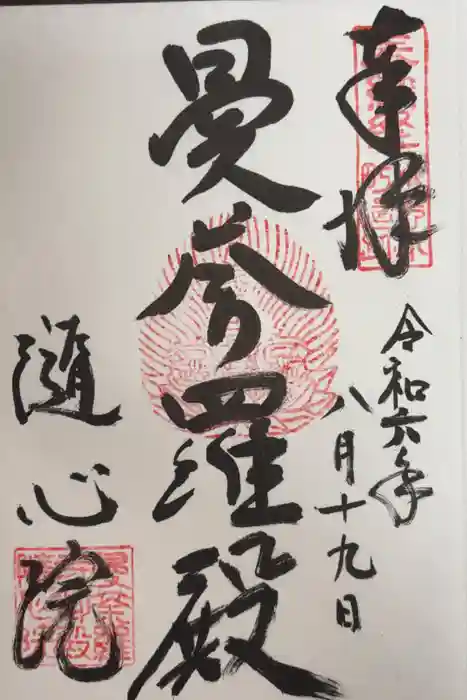 奉拝
令和六年
八月十九日
曼荼羅殿
隨心院